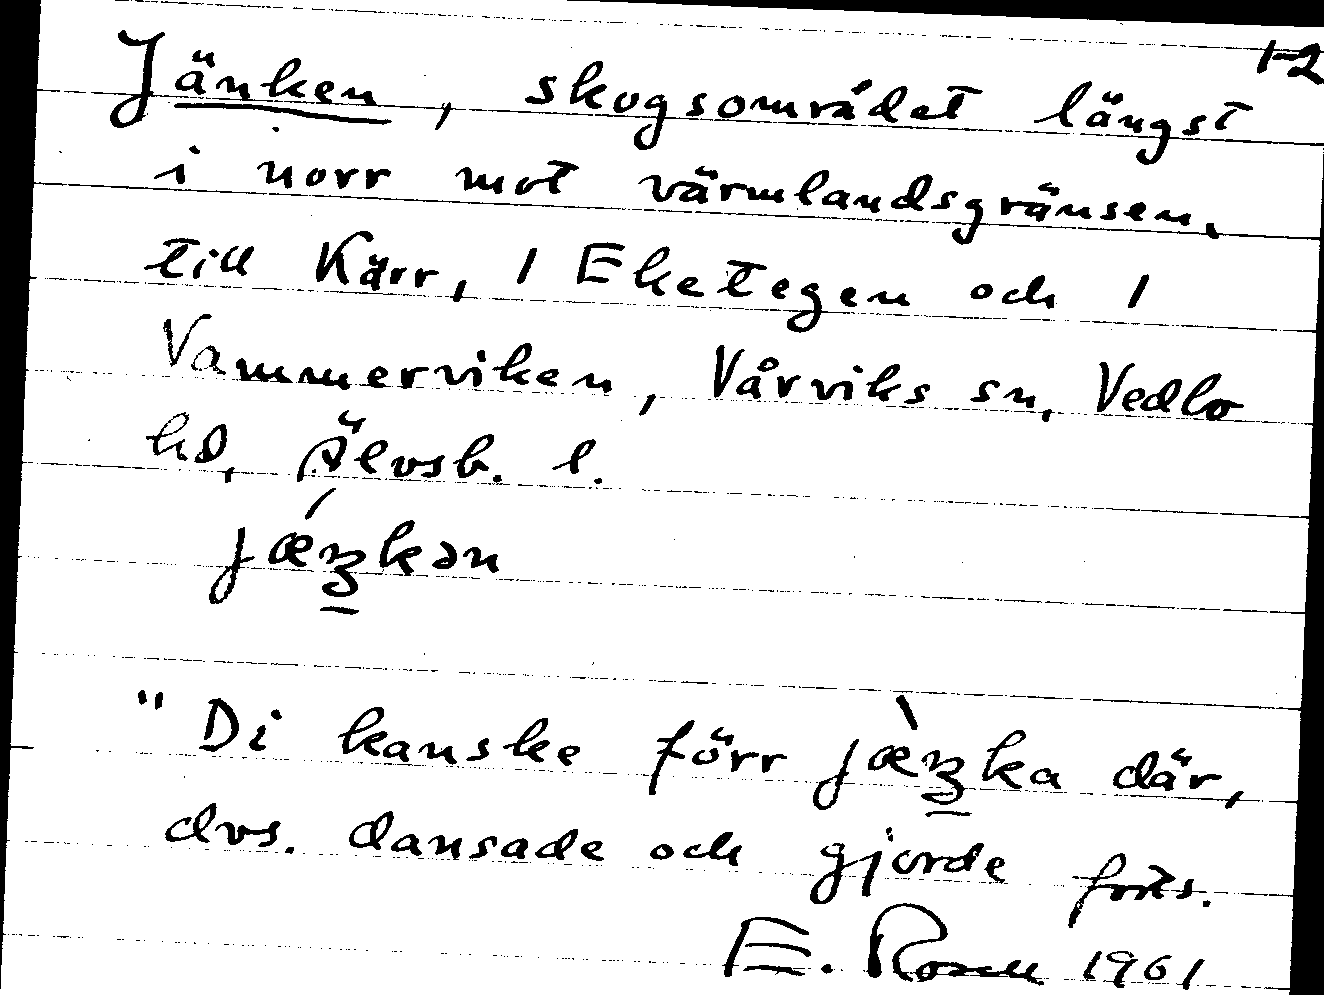 1-2
Jänken, skogsområdet längst
i norr mot värmlandsgränsen.
till Kärr, 1 Eketegen och 1
Vammerviken, Vårviks sn, Vedbo
hd, Älvsb. l.
"Di kanske förr där,
dvs. dansade och gjorde forts.
E. Rosell 1961